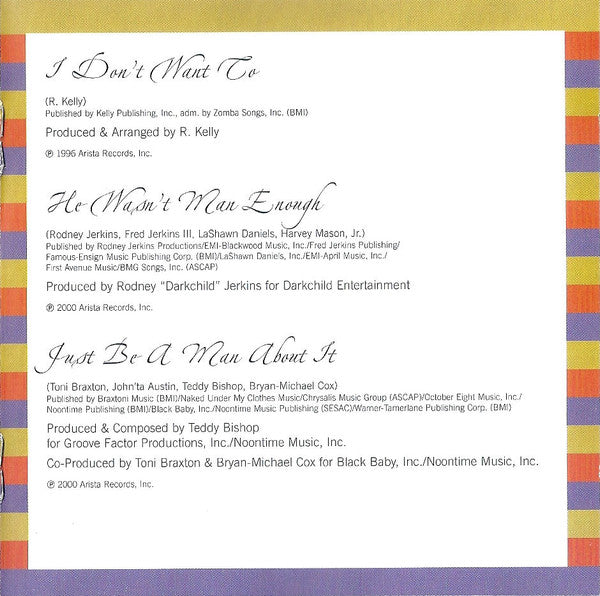 I Don't Want To
(R. Kelly)
Published by Kelly Publishing, Inc., adm. by Zomba Songs, Inc. (BMI)
Produced & Arranged by R. Kelly
℗ 1996 Arista Records, Inc.
He Wasn't Man Enough
(Rodney Jerkins, Fred Jerkins III, LaShawn Daniels, Harvey Mason, Jr.)
Published by Rodney Jerkins Productions/EMI-Blackwood Music, Inc./Fred Jerkins Publishing/
Famous-Ensign Music Publishing Corp. (BMI)/LaShawn Daniels, Inc./EMI-April Music, Inc./
First Avenue Music/BMG Songs, Inc. (ASCAP)
Produced by Rodney "Darkchild" Jerkins for Darkchild Entertainment
℗ 2000 Arista Records, Inc.
Just Be A Man About It
(Toni Braxton, John'ta Austin, Teddy Bishop, Bryan-Michael Cox)
Published by Braxtoni Music (BMI)/Naked Under My Clothes Music/Chrysalis Music Group (ASCAP)/October Eight Music, Inc./
Noontime Publishing (BMI)/Black Baby, Inc./Noontime Music Publishing (SESAC)/Warner-Tamerlane Publishing Corp. (BMI)
Produced & Composed by Teddy Bishop
for Groove Factor Productions, Inc./Noontime Music, Inc.
Co-Produced by Toni Braxton & Bryan-Michael Cox for Black Baby, Inc./Noontime Music, Inc.
℗ 2000 Arista Records, Inc.